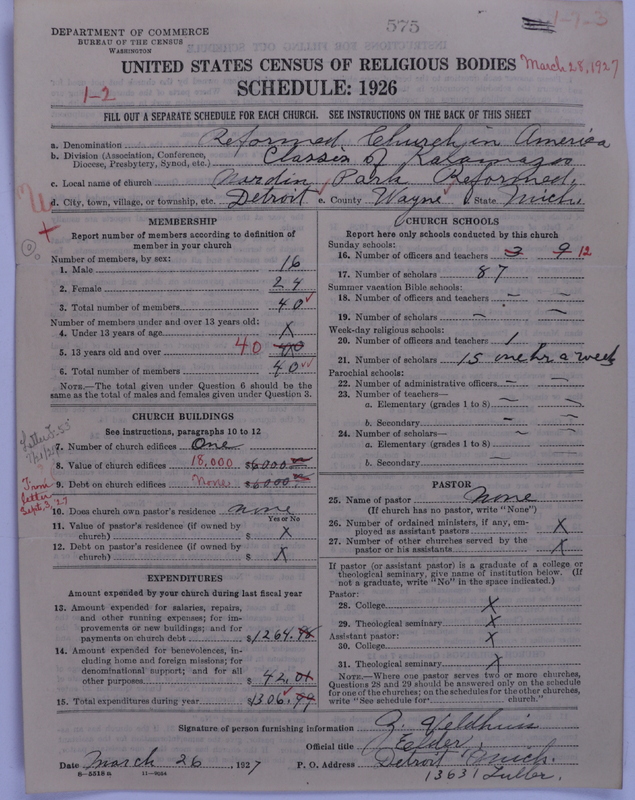 575
1-7-3
DEPARTMENT OF COMMERCE
BUREAU OF THE CENSUS
WASHINGTON
UNITED STATES CENSUS OF RELIGIOUS BODIES
March 28, 1927
1-2
SCHEDULE: 1926
FILL OUT A SEPARATE SCHEDULE FOR EACH CHURCH. SEE INSTRUCTIONS ON THE BACK OF THIS SHEET
a. Denomination Reformed Church in America
b. Division (Association, Conference, Diocese, Presbytery, Synod, etc.) Classis of Kalamazoo
c. Local name of church Nardin Park Reformed
d. City, town, village, or township, etc. Detroit e. County Wayne State Mich.
MEMBERSHIP
Report number of members according to definition of
member in your church
Number of members, by sex:
1. Male 16
2. Female 24
3. Total number of members 40
Number of members under and over 13 years old:
4. Under 13 years of age X
5. 13 years old and over 40 40
6. Total number of members 40
NOTE.—The total given under Question 6 should be
the same as the total of males and females given under Question 3.
CHURCH BUILDINGS
See instructions, paragraphs 10 to 12
7. Number of church edifices One
8. Value of church edifices 18,000 $6000
9. Debt on church edifices None $6000
From
letter
Sept. 3, '27
10. Does church own pastor's residence none
Yes or No
11. Value of pastor's residence (if owned by
church) $ X
12. Debt on pastor's residence (if owned by
church) $ X
EXPENDITURES
Amount expended by your church during last fiscal year
13. Amount expended for salaries, repairs,
and other running expenses; for im-
provements or new buildings; and for
payments on church debt $1264.
14. Amount expended for benevolences, in-
cluding home and foreign missions; for
denominational support; and for all
other purposes $ 42.01
15. Total expenditures during year $1306.99
CHURCH SCHOOLS
Report here only schools conducted by this church
Sunday schools:
16. Number of officers and teachers 3 9 12
17. Number of scholars 87
Summer vacation Bible schools:
18. Number of officers and teachers — —
19. Number of scholars — —
Week-day religious schools:
20. Number of officers and teachers 1
21. Number of scholars 15 one hr a week
Parochial schools:
22. Number of administrative officers — —
23. Number of teachers—
a. Elementary (grades 1 to 8) — —
b. Secondary — —
24. Number of scholars—
a. Elementary (grades 1 to 8) — —
b. Secondary — —
PASTOR
25. Name of pastor None
(If church has no pastor, write "None")
26. Number of ordained ministers, if any, em-
ployed as assistant pastors X
27. Number of other churches served by the
pastor or his assistants X
If pastor (or assistant pastor) is a graduate of a college or
theological seminary, give name of institution below. (If
not a graduate, write "No" in the space indicated.)
Pastor:
28. College X
29. Theological seminary X
Assistant pastor:
30. College X
31. Theological seminary X
NOTE.—Where one pastor serves two or more churches,
Questions 28 and 29 should be answered only on the schedule
for one of the churches; on the schedules for the other churches,
write "See schedule for church."
Signature of person furnishing information Z. Veldhuis
Official title Elder
Date March 26, 1927 P. O. Address Detroit Mich.
13631 Fuller.
8-5518a 11-9064